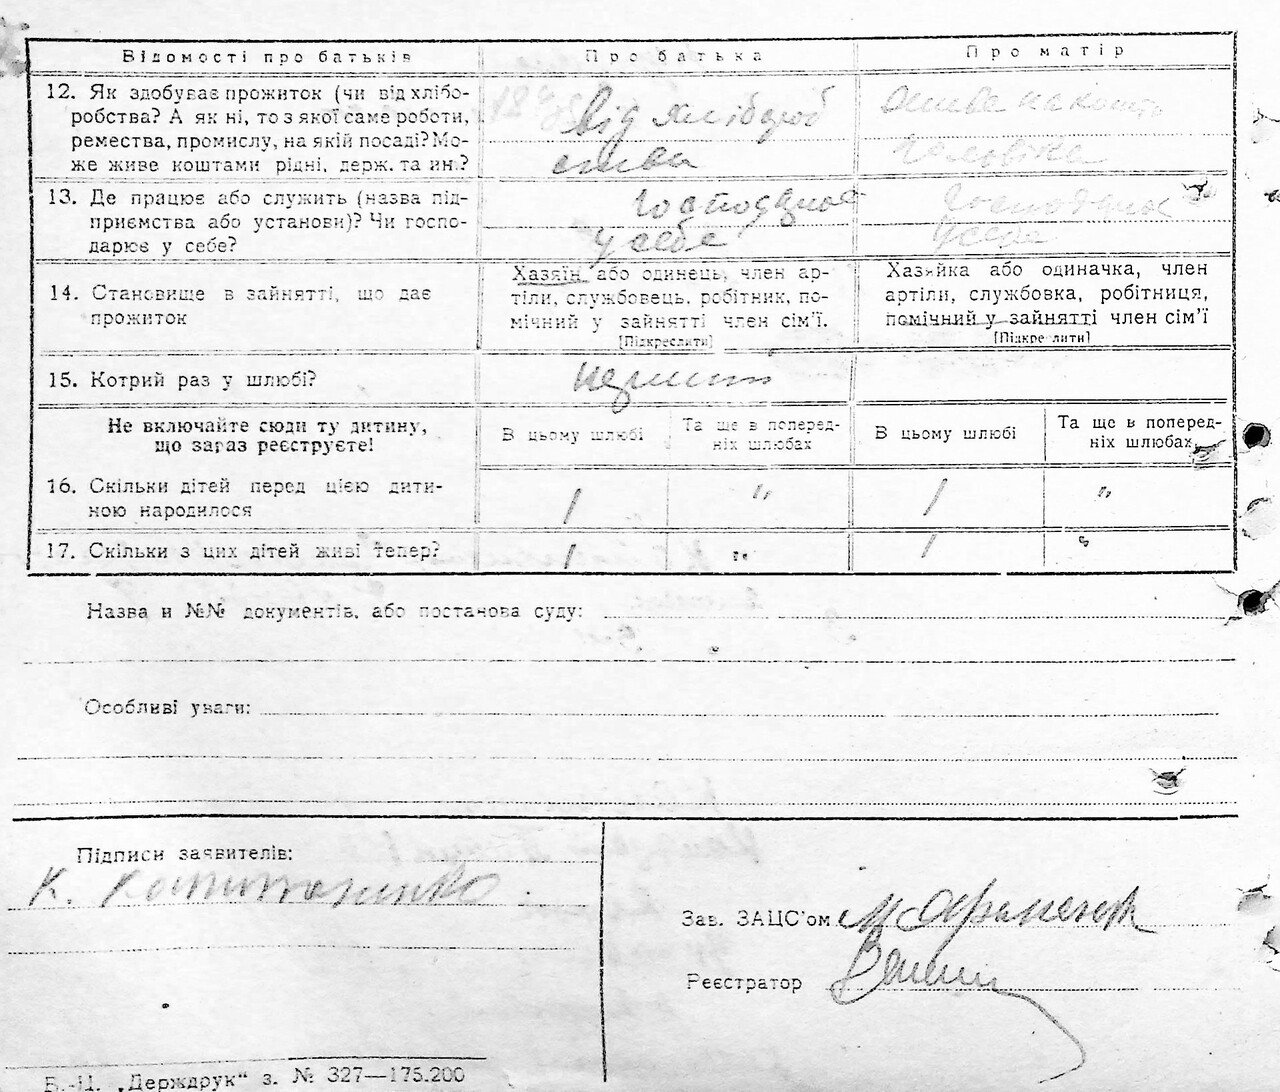 Відомості про батьків
Про батька
Про матір
12. Як здобуває прожиток (чи від хлібо-
робства? А як ні, то з якої саме роботи,
ремества, промислу, на якій посаді? Мо-
же живе коштами рідні, держ. та ин.?
від хлібороб
ства
на кошти
чоловіка
13. Де працює або служить (назва під-
приємства або установи)? Чи госпо-
дарює у себе?
Господарює
у себе
Господарює
у себе
14. Становище в зайнятті, що дає
прожиток
Хазяїн або одинець, член ар-
тіли, службовець, робітник, по-
мічний у зайнятті член сім’ї.
[Підкреслити]
Хазяйка або одиначка, член
артіли, службовка, робітниця,
помічний у зайнятті член сім’ї
[Підкре лити]
15. Котрий раз у шлюбі?
Не включайте сюди ту дитину,
що зараз реєструєте!
В цьому шлюбі
Та ще в поперед-
ніх шлюбах
В цьому шлюбі
Та ще в поперед-
ніх шлюбах
16. Скільки дітей перед цією дити-
ною народилося
1
"
1
"
17. Скільки з цих дітей живі тепер?
1
"
1
"
Назва и №№ документів, або постанова суду:
Особливі уваги:
Підписи заявителів:
К.
Зав. ЗАЦС’ом
Реєстратор
Б.-Ц. „Держдрук“ з. № 327—175.200